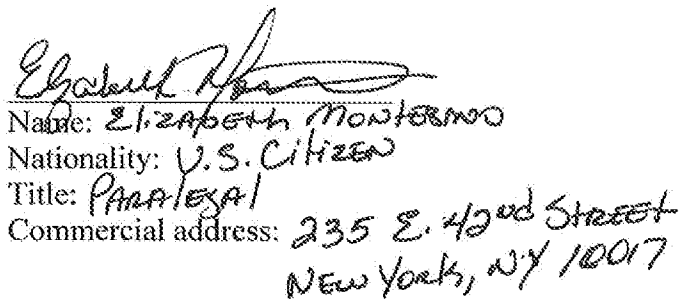 Elizabeth
Name: Elizabeth Montesano
Nationality: U.S. Citizen
Title: Paralegal
Commercial address: 235 E. 42nd Street
New York, NY 10017